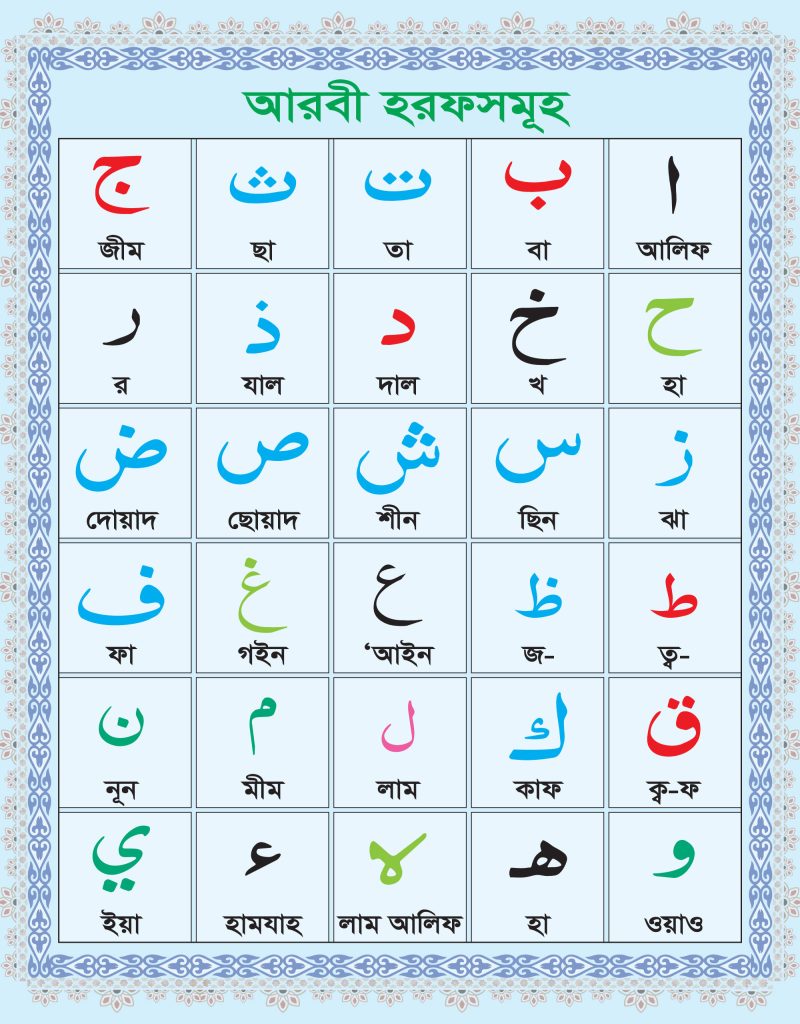 আরবী হরফসমূহ
ا ب ت ث ج
আলিফ বা তা ছা জীম
ح خ د ذ ر
হা খ দাল যাল র
ز س ش ص ض
ঝা ছিন শীন ছোয়াদ দোয়াদ
ط ظ ع غ ف
ত্ব- জ- ‘আইন গইন ফা
ق ك ل م ن
ক্ব-ফ কাফ লাম মীম নূন
و ھ لا ء ي
ওয়াও হা লাম আলিফ হামযাহ ইয়া